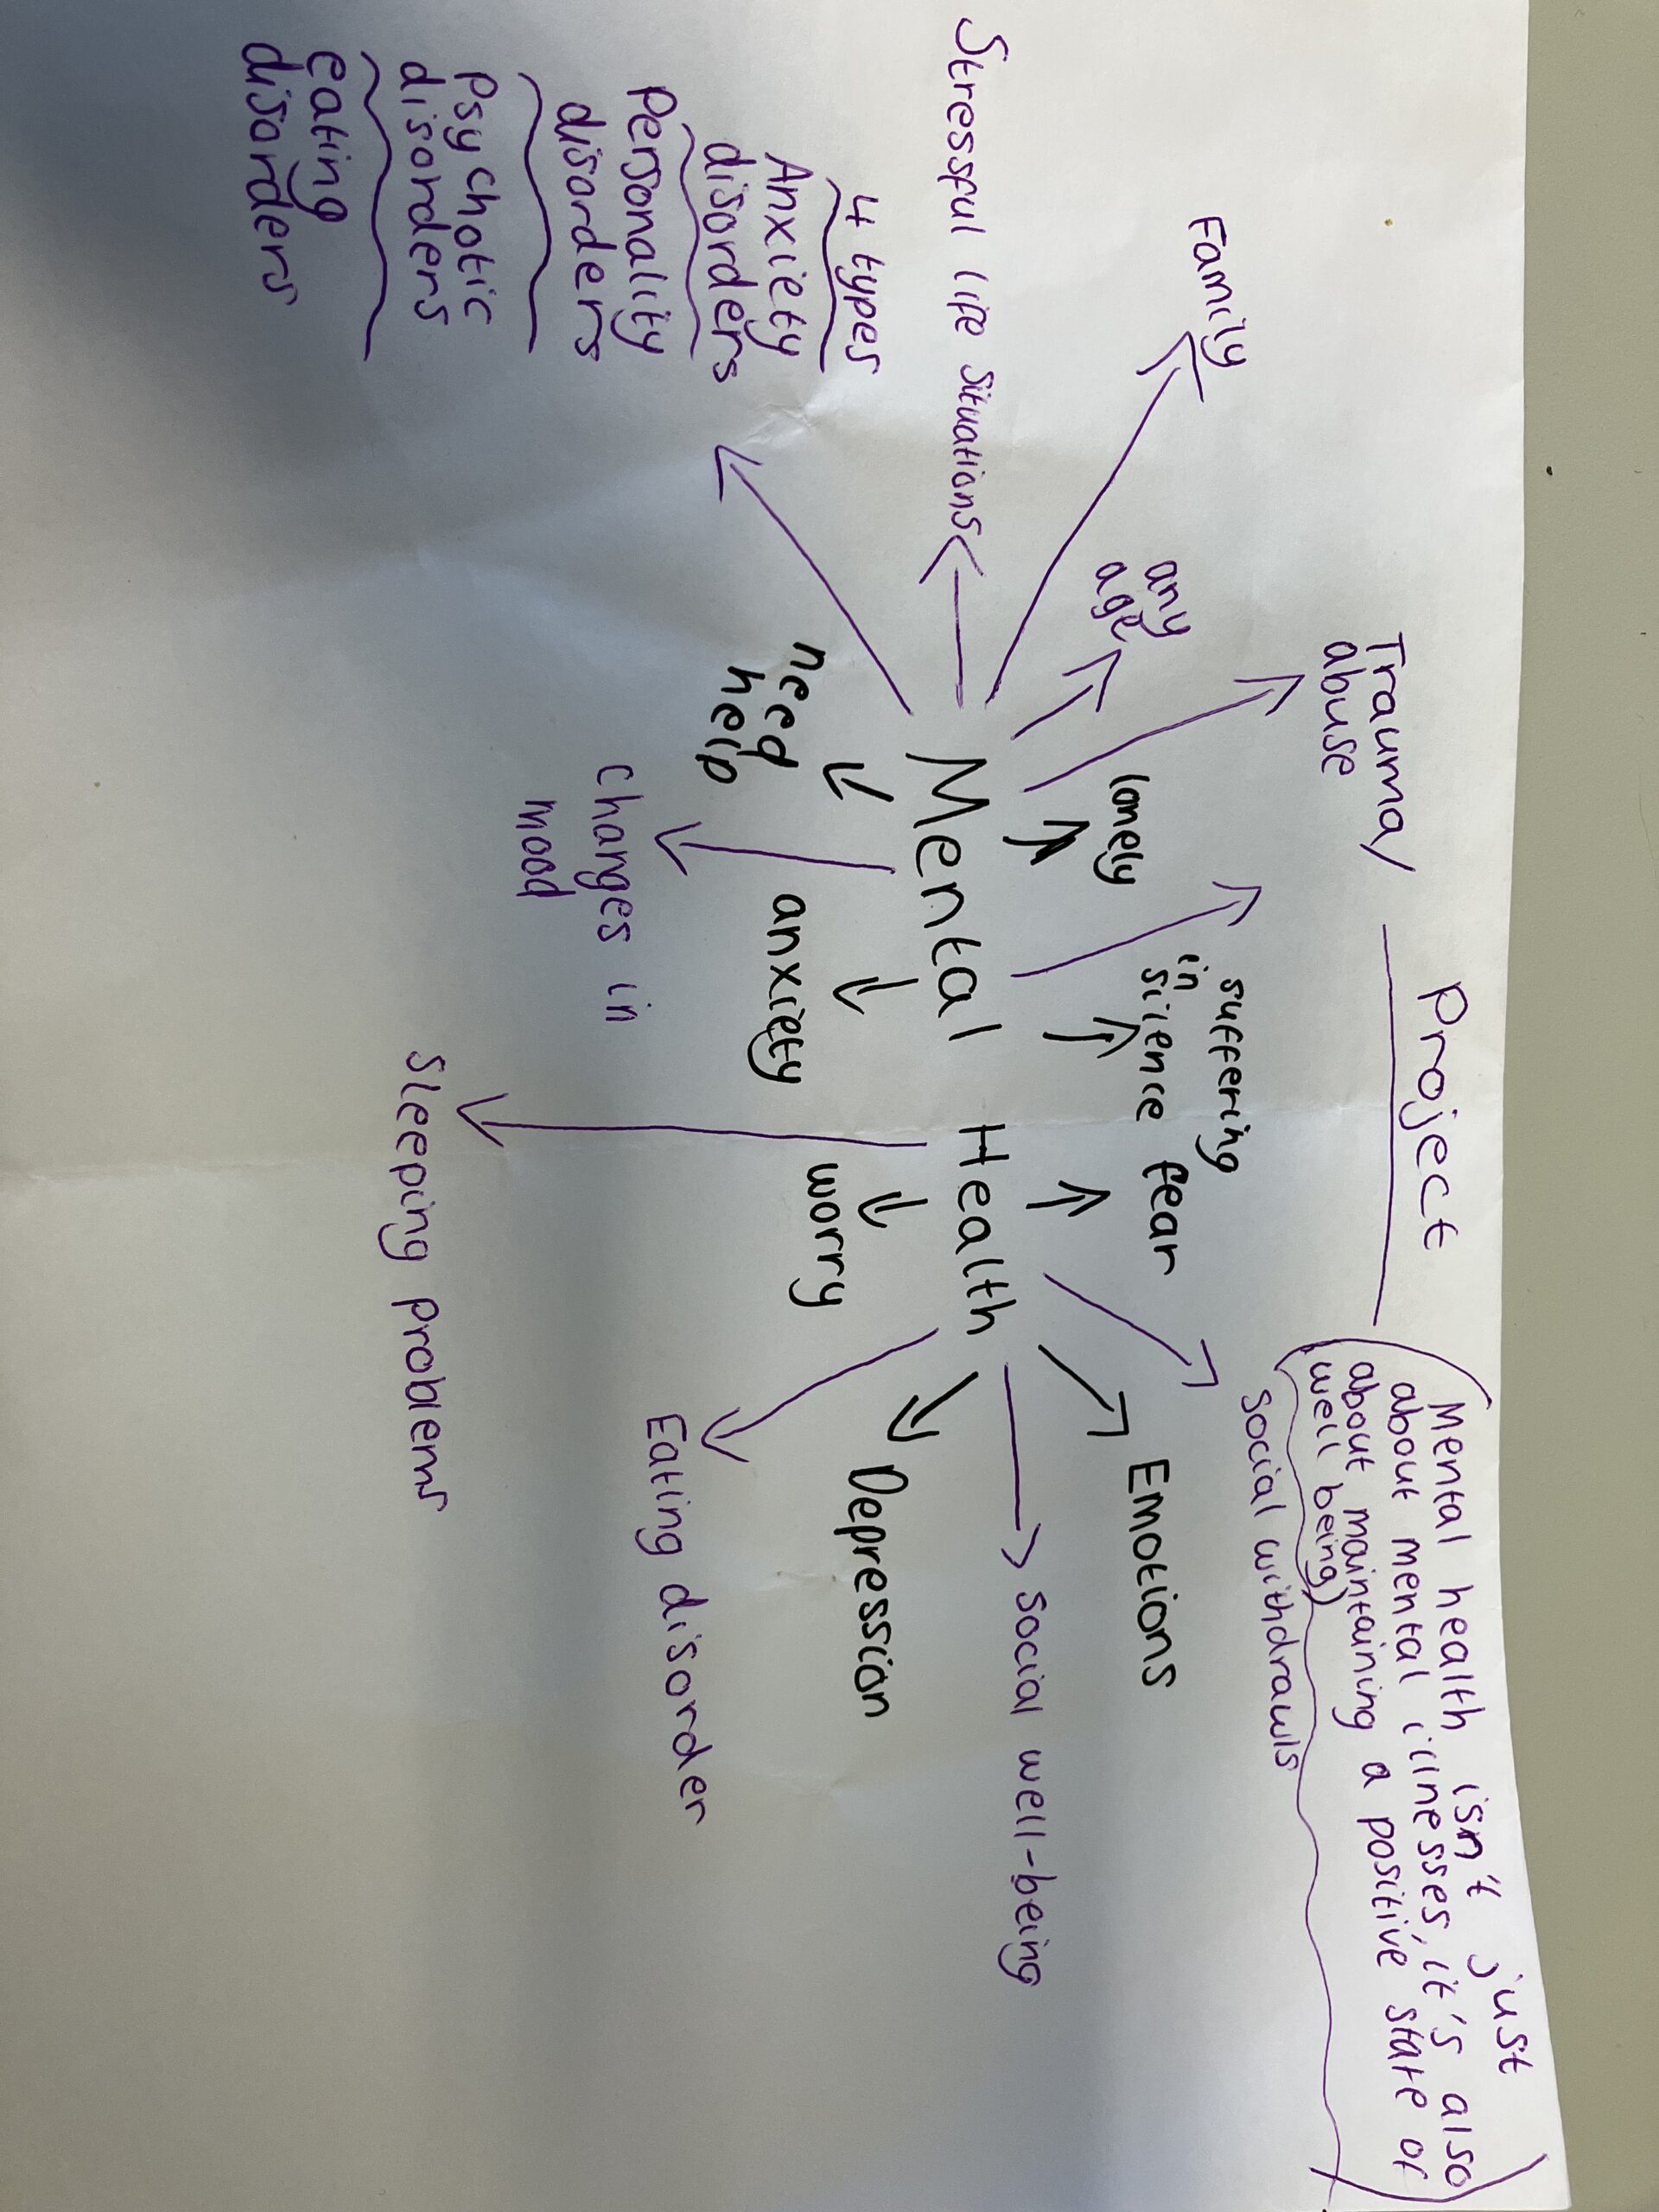 Project
Mental health isn't just
about mental illnesses, it's also
about maintaining a positive state of
well being)
Trauma/
abuse
Family
any
age
lonely
suffering
in
silence
fear
social withdrawls
Emotions
Stressful life situations
Mental Health
social well-being
4 types
Anxiety
disorders
Personality
disorders
Psychotic
disorders
eating
disorders
need
help
anxiety
worry
Depression
changes in
mood
Eating disorder
Sleeping problems